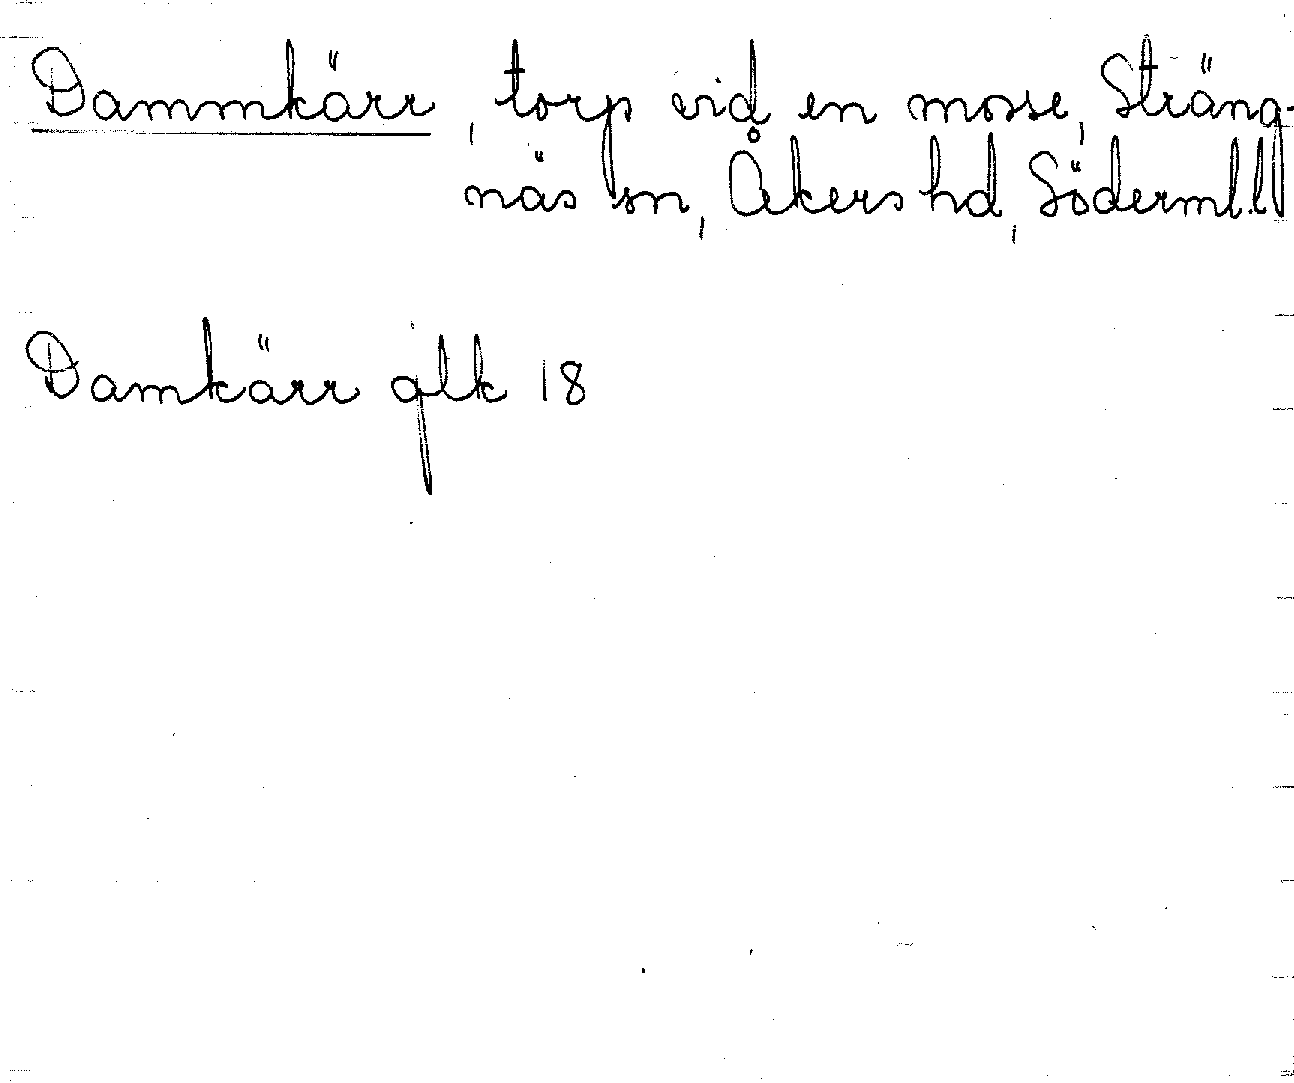 Dammkärr, torp vid en mosse, Sträng-
näs sn, Åkers hd, Söderml.l
Damkärr glk 18